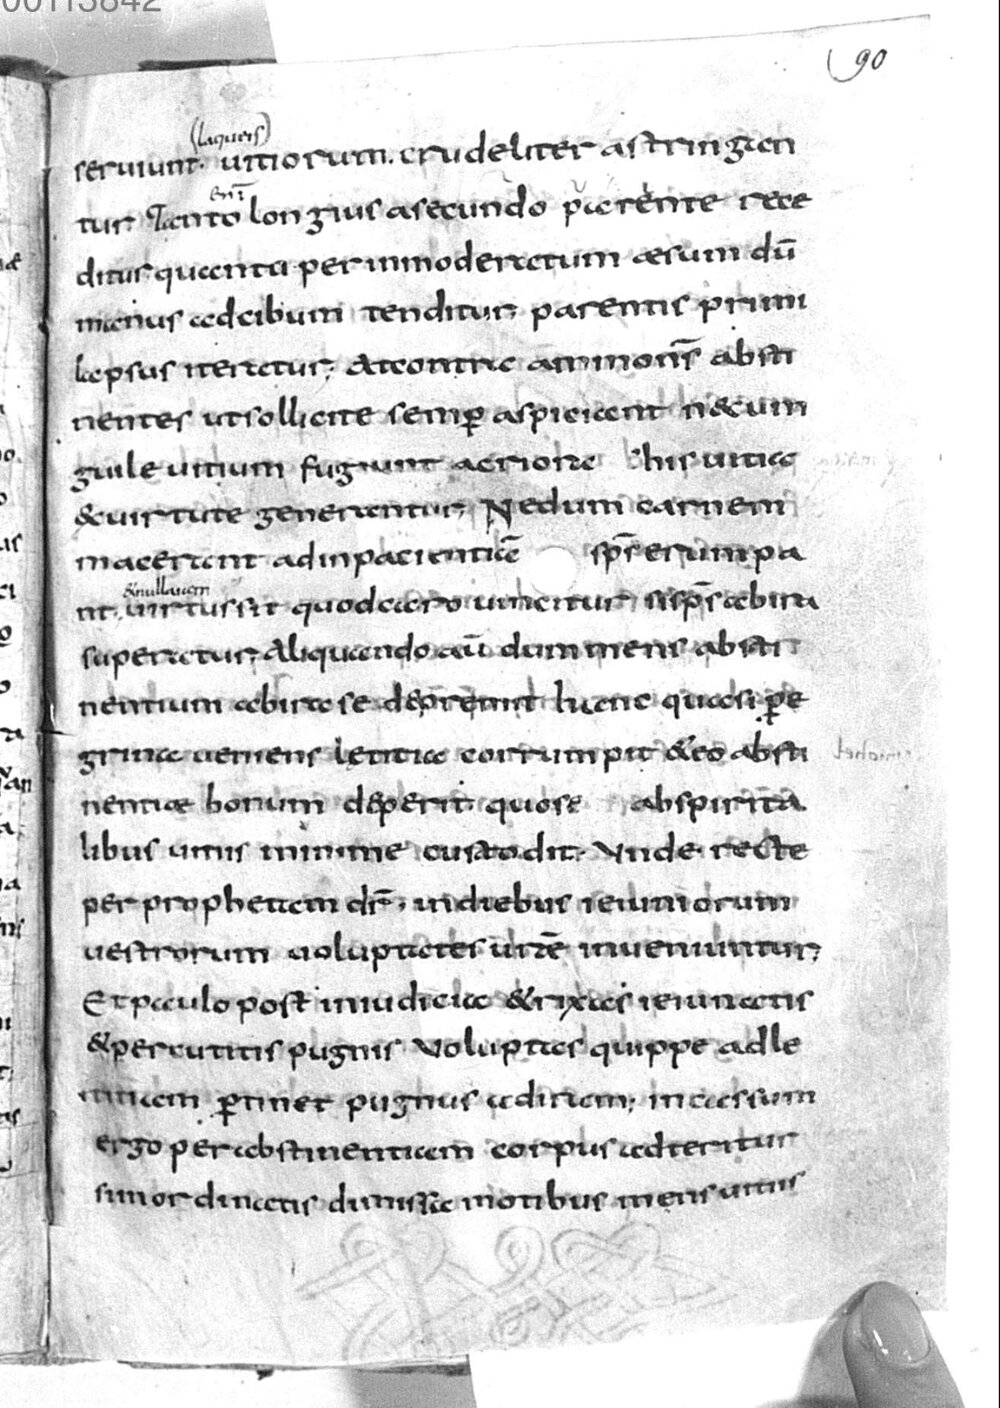 00113842
90
(laqueis)
seruiunt. uitiorum. crudeliter astringan
enī
tur Tanto longius asecundo parente rece
ditur quanta per inmoderatum aesum dū
manus adcibum tenditur; parentis primi
lapsus iteratur; Atcontra ammonēs absti
nentes utsollicite semꝑ aspiciant n&cum
guile uitium fugiunt acriora his uitia
&uirtute generantur; Nedum carnem
macerant adinpacientiā sp̄s erumpa
&nullaiam
nt. uirtus sit quodcaro uincitur, sisp̄s abira
superatur; Aliquando aū dum mens absti
nentium abira se depremit hanc quasi ꝑe
grina ueniens letitia corrumpit &eo absti
nentiae bonum deperit quose abspirita
libus uitiis minime custodit. Vnde recte
per prophetam dr̄, indiebus ieiuniorum
uestrorum uoluptates urāe inueniuntur;
Etpaulo post iniudicia &rixas ieiunatis
&percutitis pugnis Voluptas quippe adle
titiam ꝑtinet pugnus adiram; incassum
ergo per abstinentiam corpus adteritur
sinordinatis dimissa motibus mens uitiis